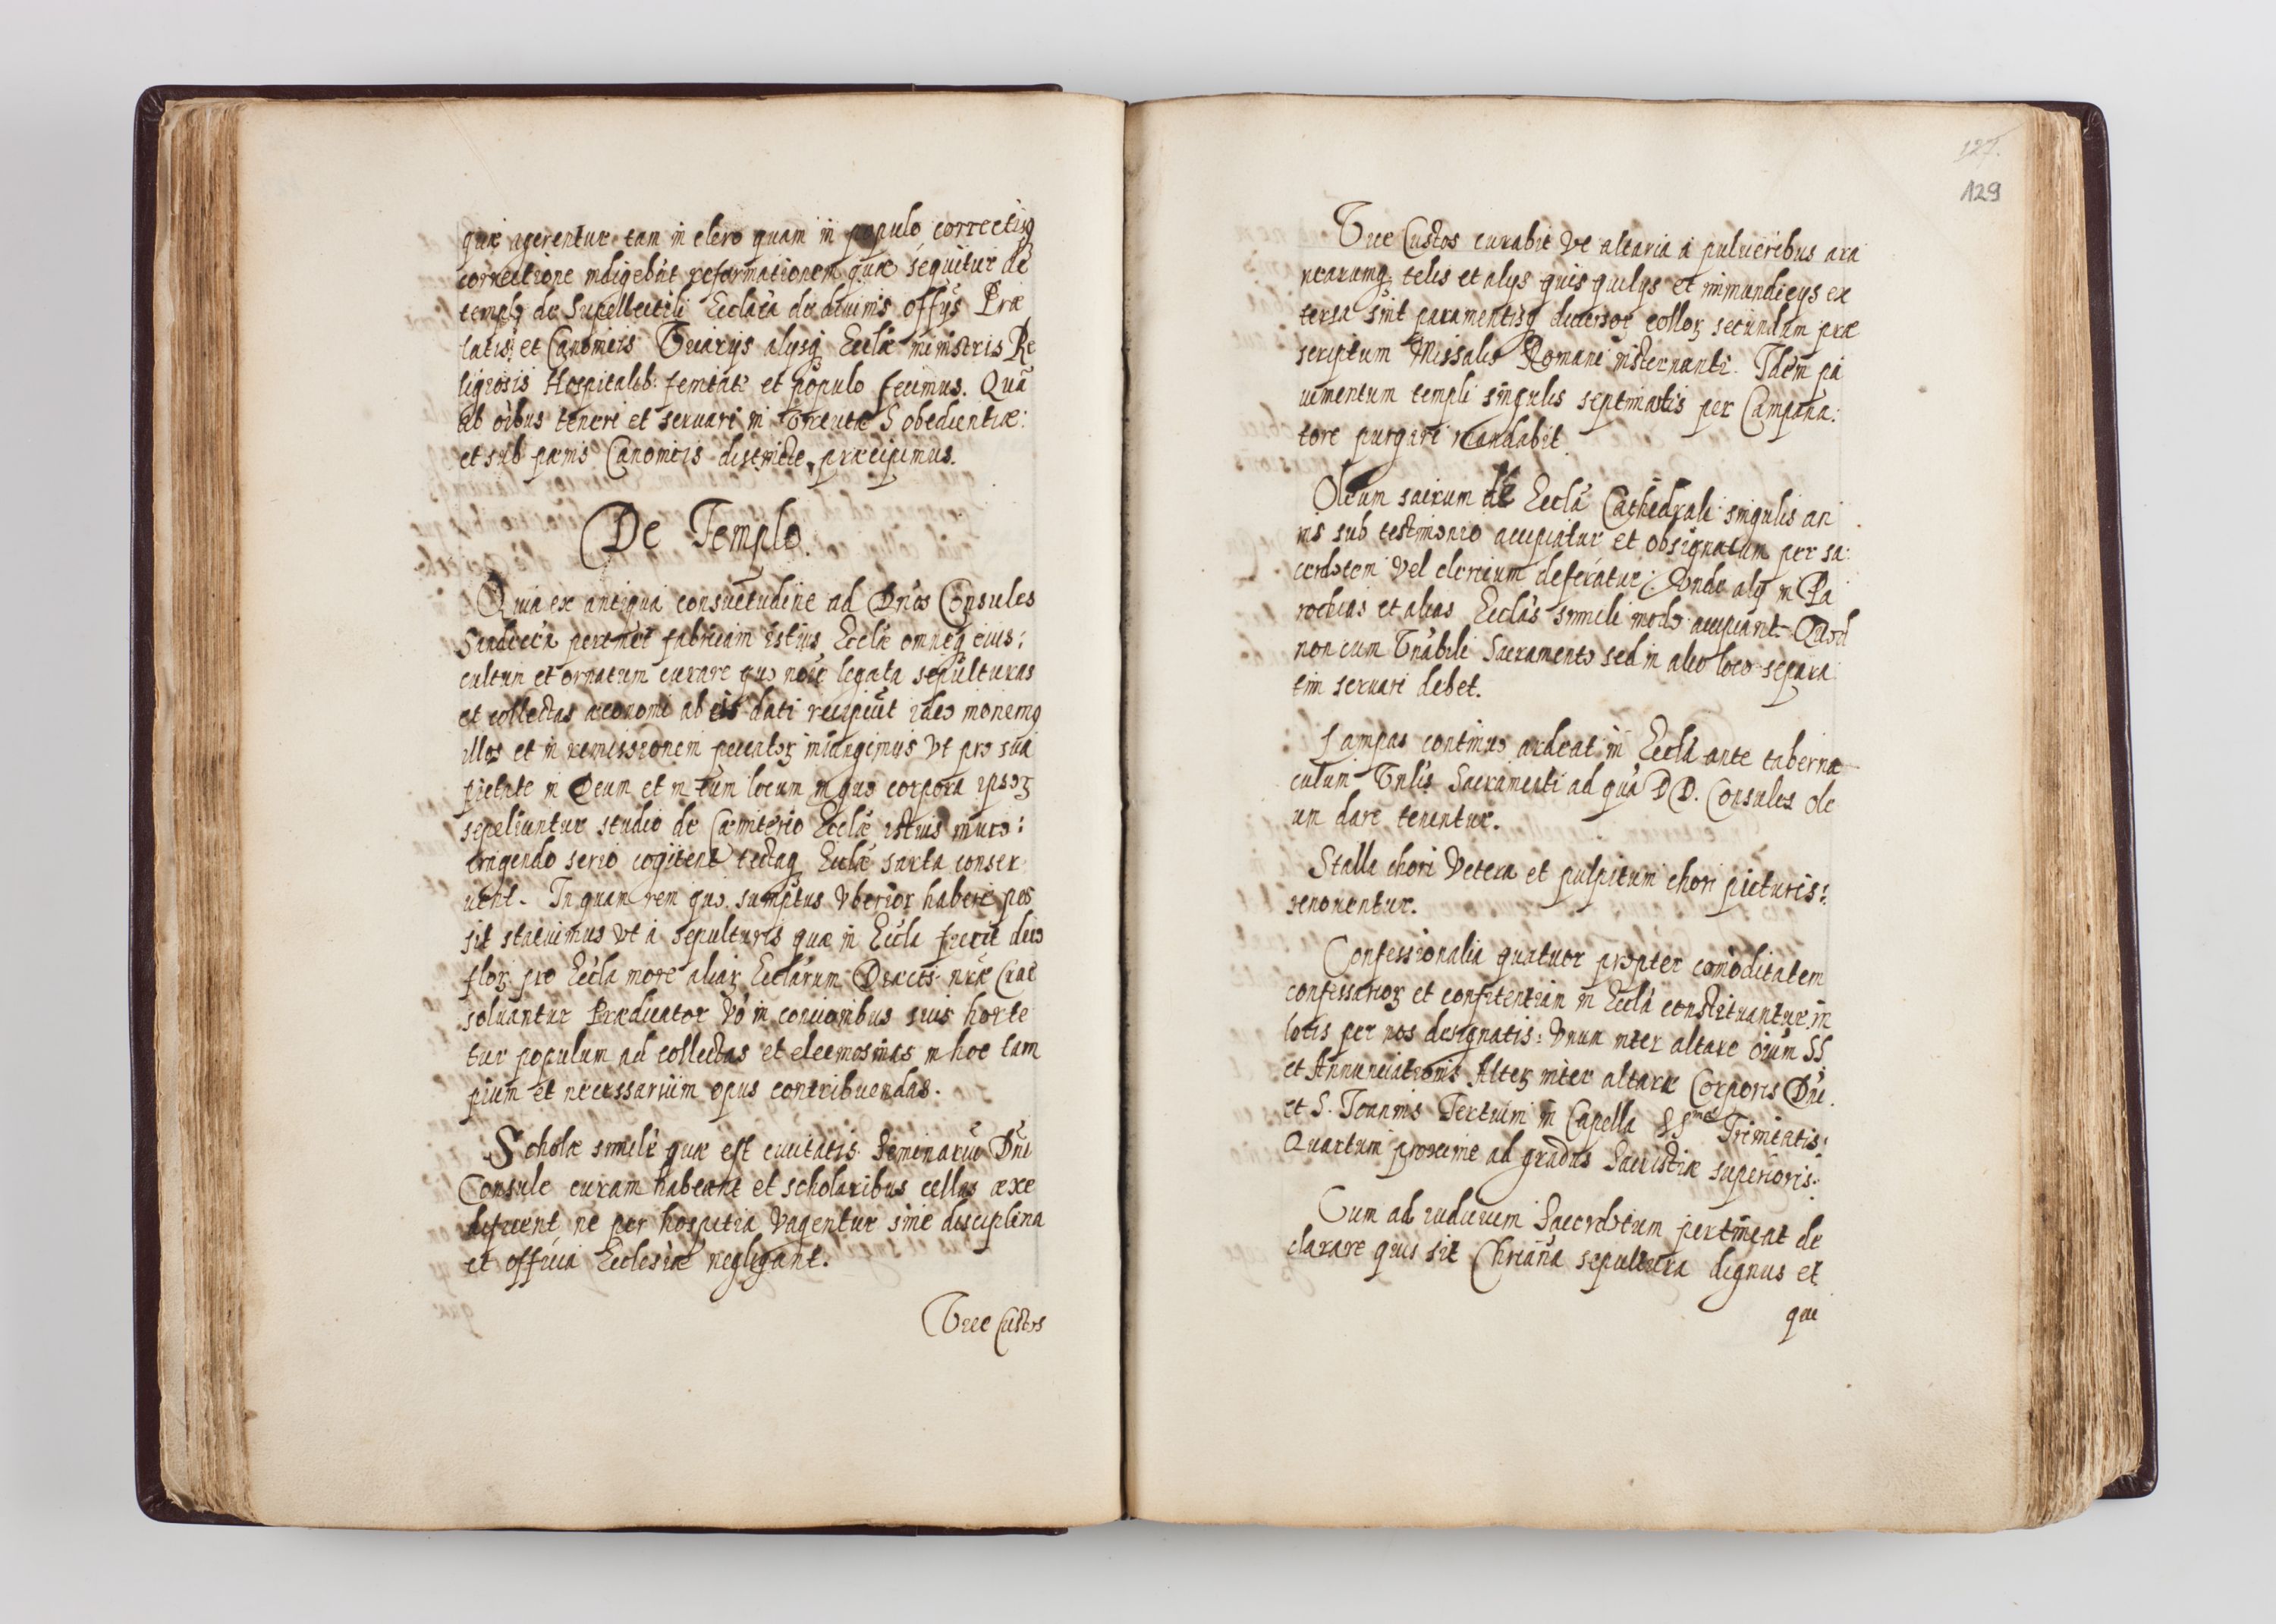 quæ agerentur tam in clero quam in populo correctisq
correctione indigebãt reformationem quæ sequitur de
templ de Supellectili Ecclica de diuinis offijs Præ
latis et Canonicis Vicarijs alijsq Ecclæ ministris Re
ligiosis Hospitalib. et populo fecimus. Quã
ab oibus teneri et seruari in virtute S obedientiæ:
et sub pænis Canonicis districte præcipimus.
De Templo.
Quia ex antiqua consuetudine ad Dnos Consules
pertinet fabricam istius Ecclæ omneq eius:
cultum et ornatum curare quo noie legata sepulturas
et collectas œconomi ab eis dati recipiũt ideo monemq
illos et in remissionem peccatoꝝ iniungimus vt pro sua
pietate in Deum et in eum locum in quo corpora ipsoꝝ
sepeliuntur studio de Cæmiterio Ecclæ istius muro:
erigendo serio cogitent tectaq Ecclæ sarta conser
uent. In quam rem quo sumptus vberior haberi pos
sit statuimus vt à sepulturis quæ in Eccla fierit duo
floꝝ pro Eccla more aliaꝝ Ecclarum Diœcis nræ Crac
soluantur Prædicator vo in concionibus suis horte
tur populum ad collectas et eleemosinas in hoc tam
pium et necessarium opus contribuendas.
Scholæ simile quæ est ciuitatis Seminariũ Dni
Consule curam habeant et scholaribus cellas
ne per hospitia vagentur sine disciplina
et officia Ecclesiæ neglegant.
Vice Custos
127.
129
Vice Custos curabit vt altaria à pulueribus ara
nearumq telis et alijs quis quilijs et immundicijs ex
tersa sint paramentisq diuersor colloꝝ secundum præ
scriptum Missalis Romani insternantr. Idem pa
uimentum templi singulis septimanis per Campana:
tore purgari mandabit.
Oleum sacrum de Eccla Cathedrali singulis an
nis sub testimonio accipiatur et obsignatum per sa:
cerdotem vel clericum deferatur: Vnde alij in Pa
rochias et alias Ecclas simili modo accipiant. Quod
non cum Vnabili Sacramento sed in alio loco separa
tim seruari debet.
Lampas continuo ardeat in Eccla ante taberna
culum Vnlis Sacramenti ad quã DD. Consules ole
um dare tenentur.
Stalla chori vetera et pulpitum chori picturis:
renouentur.
Confessionalia quatuor propter comoditatem
confessarioꝝ et confitentium in Eccla constituantur in
locis per nos designatis: Vnum inter altare oium SS
et Annunciationis Alteꝝ inter altare Corporis Dni.
et S. Ioannis Tertium in Capella SSmæ Trinitatis:
Quartum proxime ad gradus Sacristiæ superioris.
Cum ad iudicium Sacerdotum pertineat de
clarare quis sit Chriana sepultura dignus et
qui